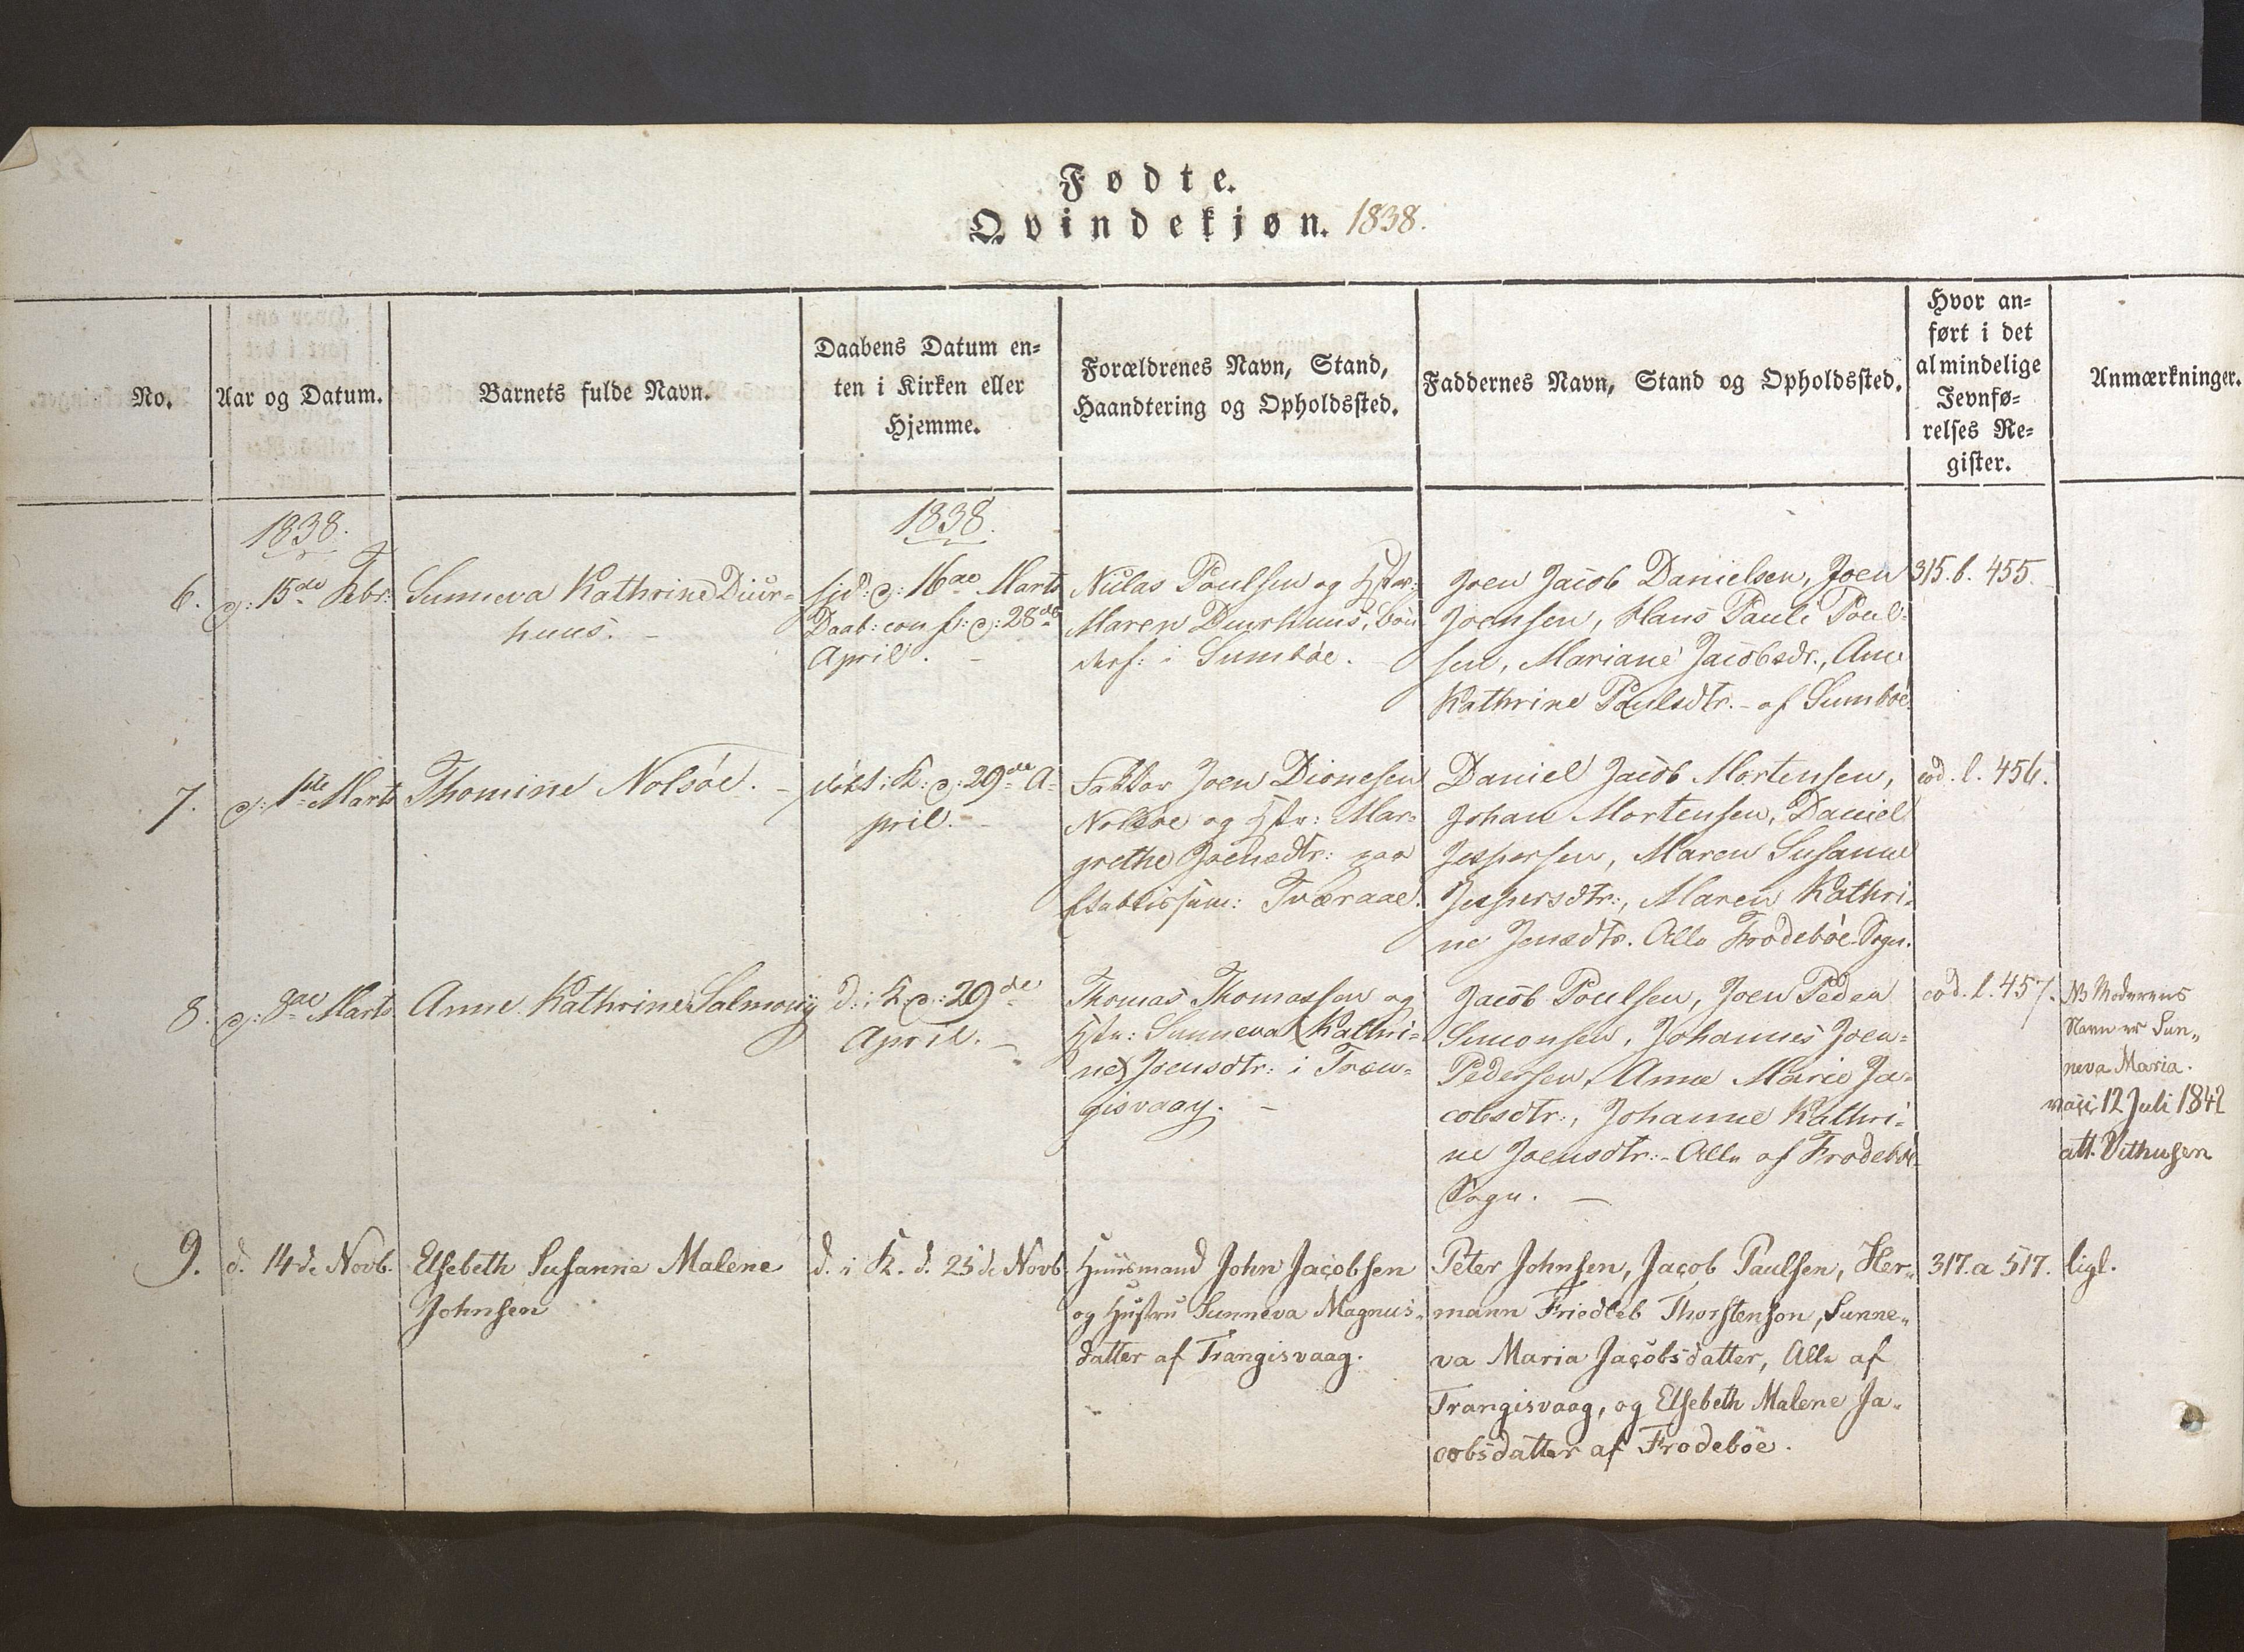 Fødte.
Qvindekjøn. 1838.
No.
Aar og Datum.
Barnets fulde Navn.
Daabens Datum en=
ten i Kirken eller
Hjemme.
Forældrenes Navn, Stand,
Haandtering og Opholdssted.
Faddernes Navn, Stand og Opholdssted.
Hvor an=
ført i det
almindelige
Jevnfø=
relses Re=
gister.
Anmærkninger.
1838.
1838.
6.
d: 15de Febr:
Sunneva Kathrine Diur=
huus. -
hjd: d: 16de Marts
Daab: conf: d: 28de
April. -
Niclas Poulsen og Hstr:
Maren Duurhuus,
i Sumbøe.
Joen Jacob Danielsen, Joen
Joensen, Hans Pauli Poul-
sen, Mariane Jacobsdr., Ane
Kathrine Paulsdtr. - af Sumbøe.
315. b. 455.
7.
d: 1ste Marts
Thomine Nolsøe. -
döbt i K: d: 29de A-
pril. -
Faktor Joen Dionesen
Nolsøe og Hstr: Mar-
grethe Joensdtr: paa
Etablissem: Tværaae.
Daniel Jacob Mortensen,
Johan Mortensen, Daniel
Jespersen, Maren Susanne
Jespersdtr:, Maren Kathri-
ne Jensdtr. Alle Frodebøe Sogn.
eod. l. 456.
8.
d: 8de Marts
Anne Kathrine Salmony
d: i K: d: 29de
April. -
Thomas Thomassen og
Hstr: Sunneva (Kathri-
ne) Joensdtr: i Tran-
gisvaag. -
Jacob Poulsen, Joen Peder
Simonsen, Johannes Joen-
Pedersen, Anne Marie Ja-
cobsdtr:, Johanne Kathri-
ne Joensdtr: - Alle af Frodebøe
Sogn. -
eod. l. 457.
NB Moderens
Navn er Sun„
neva Maria.
vacc 12 Juli 1842
att. Vithusen
9.
d. 14de Novb.
Elsebeth Susanne Malene
Johnsen
d. i K. d. 25de Novb
Huusmand John Jacobsen
og Hustru Sunneva Magnus„
datter af Trangisvaag.
Peter Johnsen, Jacob Paulsen, Her„
mann Friedleb Thorstenson, Sunne„
va Maria Jacobsdatter, Alle af
Trangisvaag, og Elsebeth Malene Ja„
cobsdatter af Frodebøe.
317. a 517.
ligl.